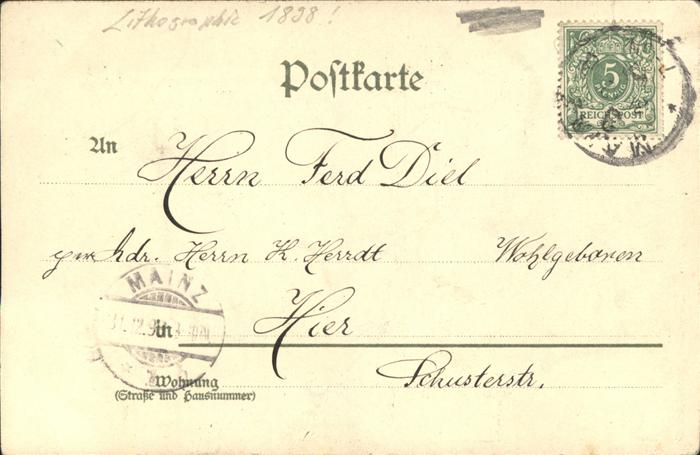 Lithographie 1898!
Postkarte
5
PFENNIG
REICHSPOST
MA
An Herrn Ferd Diel
per Adr. Herrn K. Herrdt Wohlgeboren
MAINZ
31.12.9
in Hier
Schusterstr.
Wohnung
(Straße und Hausnummer)